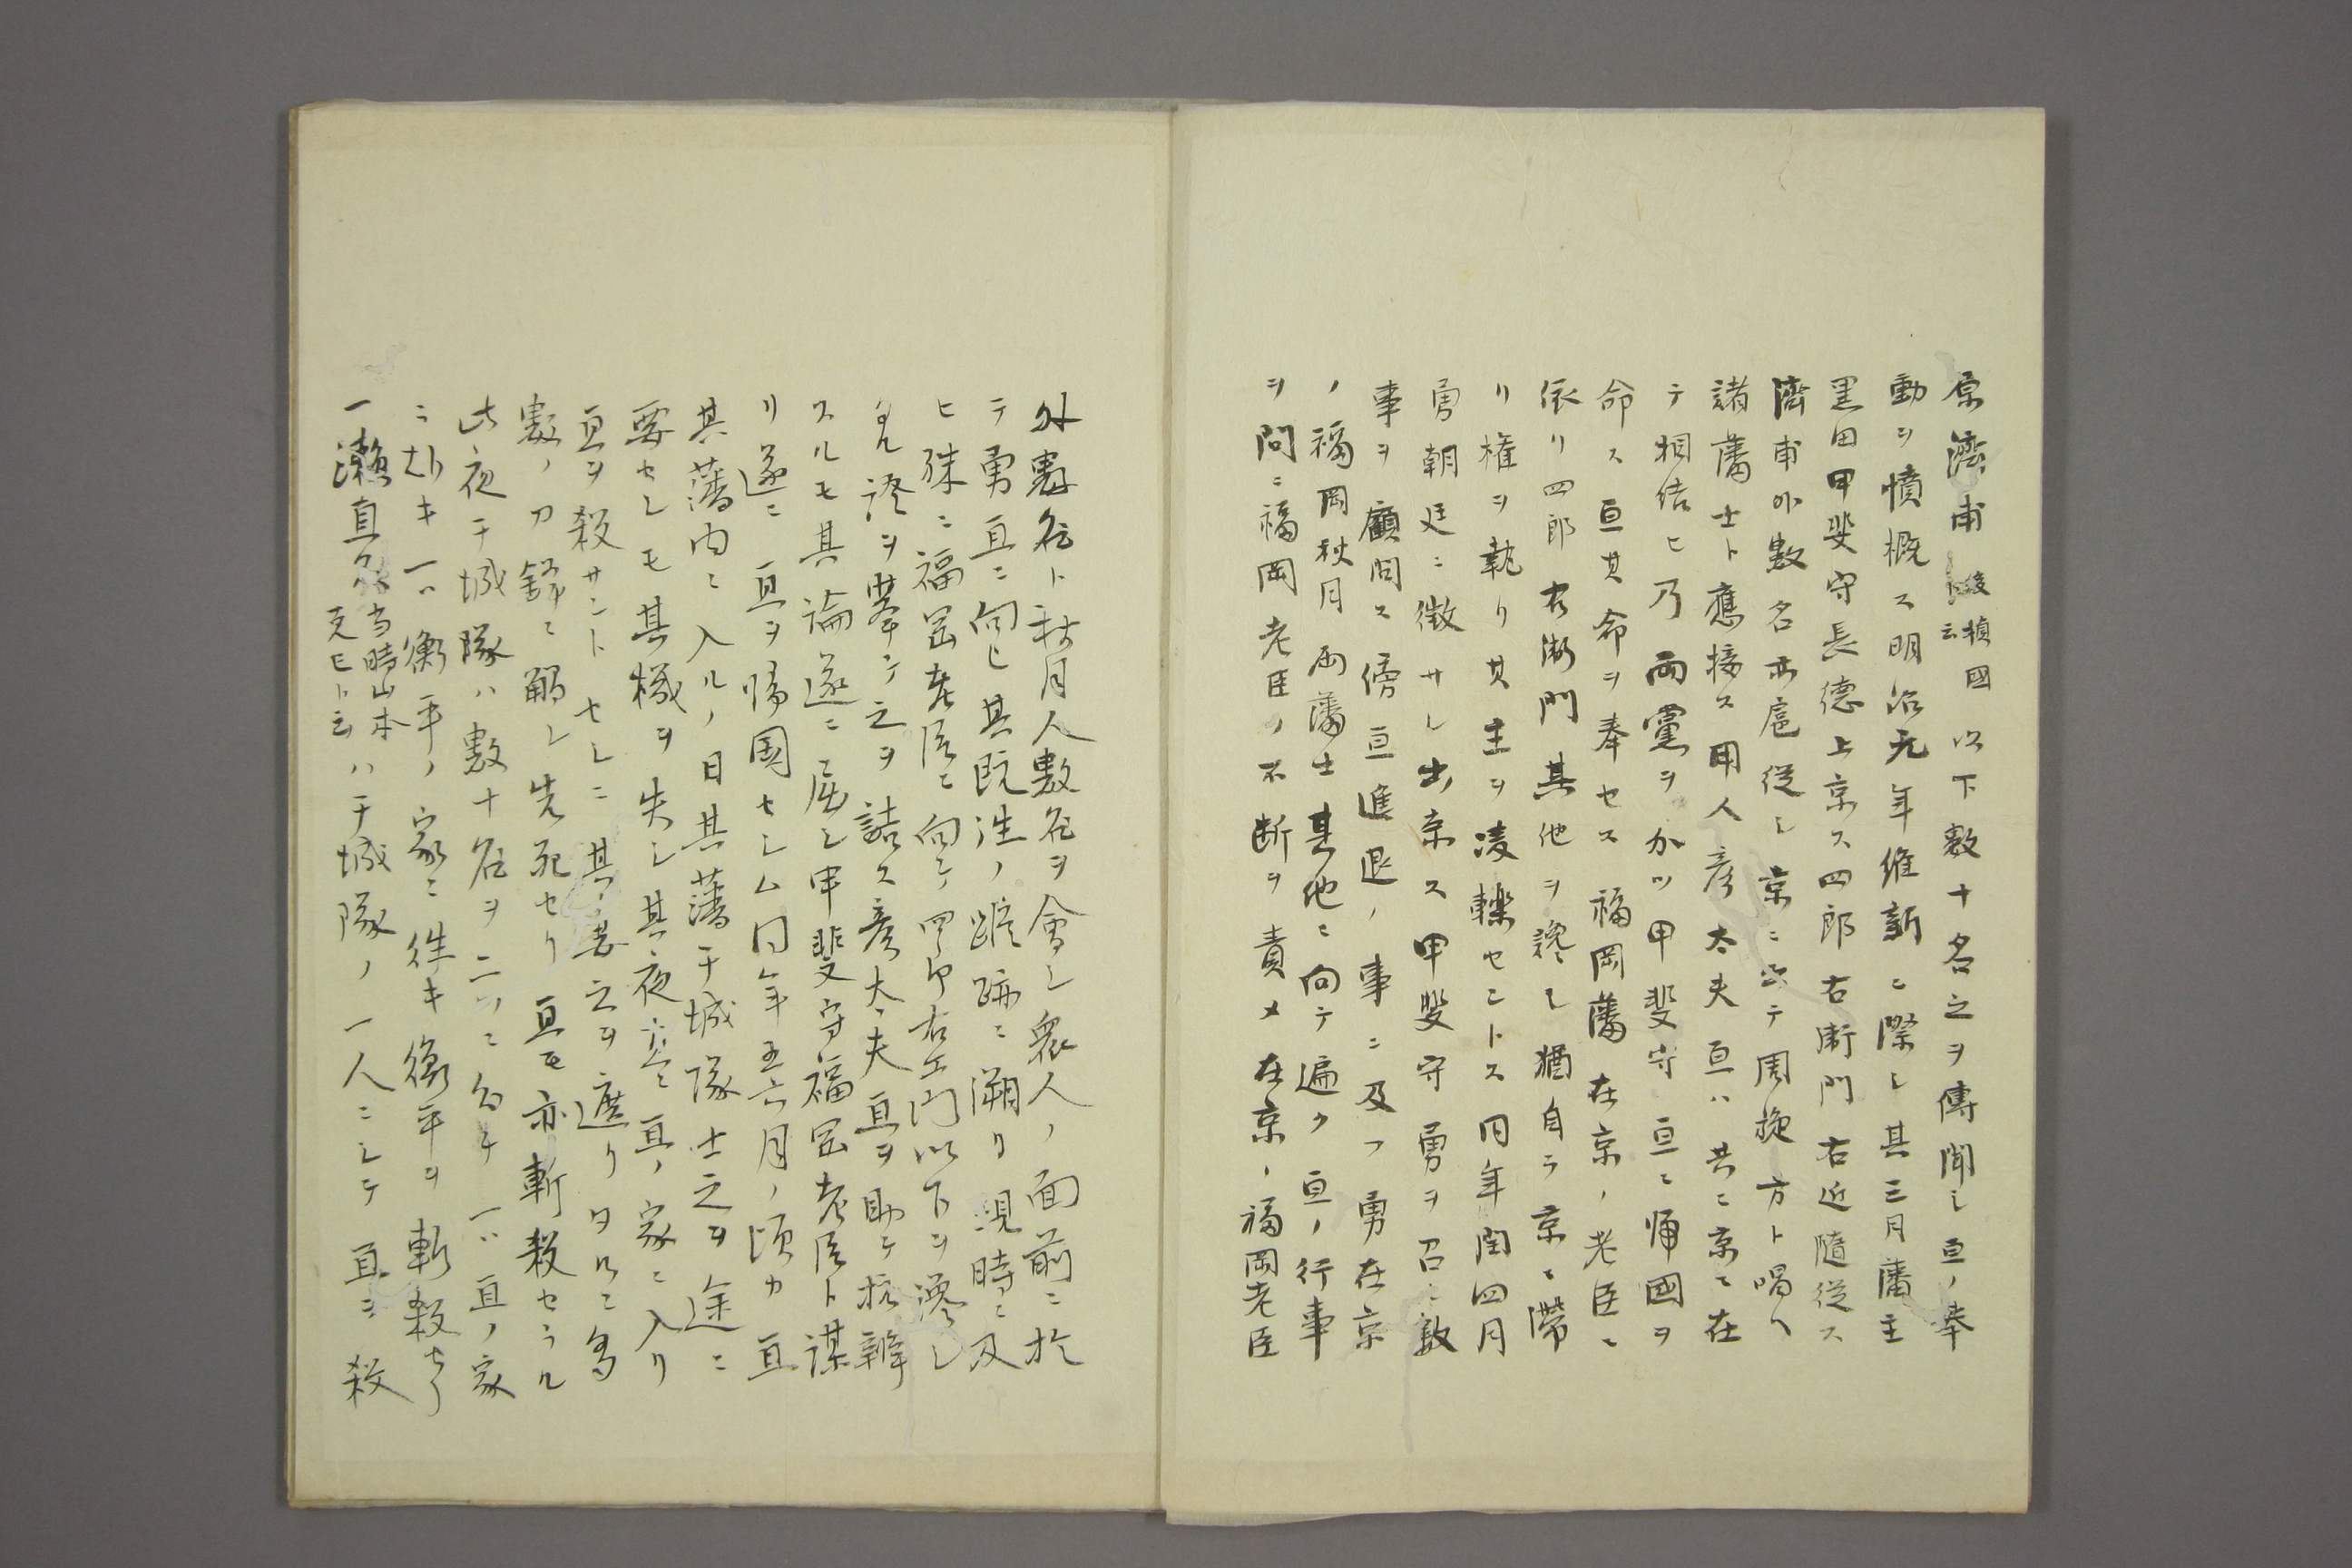 原濟甫後楨國云以下數十名之ヲ傳聞シ亘ノ挙
動ヲ憤概ス明治元年維新ニ際シ其三月藩主
黒田甲斐守長德上京ス四郎右衛門右近隨從ス
濟甫外數名亦扈從シ京ニ出テ周旋方ト唱ヘ
諸藩士ト應接ス用人彦太夫亘ハ共ニ京ニ在
テ相結ヒ乃両黨ヲ分ツ甲斐守亘ニ帰國ヲ
命ス亘其命ヲ奉セス福岡藩在京ノ老臣ニ
依リ四郎右衛門其他ヲ讒シ猶自ラ京ニ滞
リ権ヲ執リ其主ヲ凌轢セントス同年閏四月
勇朝廷ニ徴サレ出京ス甲斐守勇ヲ召ニ數
事ヲ顧問ス傍亘進退ノ事ニ及フ勇在京
ノ福岡秋月両藩士其他ニ向テ遍ク亘ノ行事
ヲ問ニ福岡老臣ノ不断ヲ責メ在京ノ福岡老臣
外數名ト秋月人數名ヲ會シ衆人ノ面前ニ於
テ勇亘ニ向ヒ其既往ノ蹤跡ニ溯リ現時ニ及
ヒ殊ニ福岡老臣ニ向ケ四郎右エ門以下ヲ讒シ
タル證ヲ挙ケ之ヲ詰ス彦太夫亘ヲ助ケ抗辯
スルモ其論遂ニ屈シ甲斐守福岡老臣ト謀
リ遂ニ亘ヲ帰国セシム同年五六月ノ頃カ亘
其藩内ニ入ルノ日其藩干城隊士之ヲ途ニ
要セシモ其機ヲ失シ其夜亘ノ家ニ入リ
亘ヲ殺サントセシニ其妻之ヲ遮リタルニ多
數ノ刀鋒ニ觸レ先死セリ亘モ亦斬殺セラル
此夜干城隊ハ數十名ヲ二ツニ分チ一ハ亘ノ家
ニ赴キ一ハ衛平ノ家ニ往キ衛平ヲ斬殺セリ
一瀬直久当時山本克已ト云ハ干城隊ノ一人ニシテ亘ヲ殺